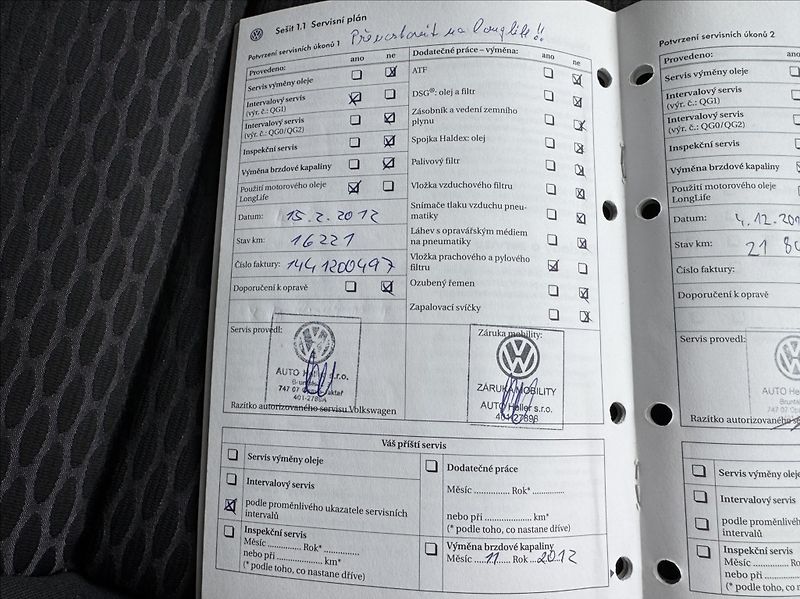 Sešit 1.1 Servisní plán
Potvrzení servisních úkonů 1
Přenastavit na longlife!!
Provedeno: ano ne
Servis výměny oleje
Intervalový servis
(výr. č.: QG1)
Intervalový servis
(výr. č.: QG0/QG2)
Inspekční servis
Výměna brzdové kapaliny
Použití motorového oleje
LongLife
Datum: 15.2.2012
Stav km: 16221
Číslo faktury: 1441200497
Doporučení k opravě
Dodatečné práce – výměna: ano ne
ATF
DSG®: olej a filtr
Zásobník a vedení zemního
plynu
Spojka Haldex: olej
Palivový filtr
Vložka vzduchového filtru
Snímače tlaku vzduchu pneu-
matiky
Láhev s opravářským médiem
na pneumatiky
Vložka prachového a pylového
filtru
Ozubený řemen
Zapalovací svíčky
Servis provedl:
AUTO Heller s.r.o.
747 07
401-27898
Razítko autorizovaného servisu Volkswagen
Záruka mobility:
ZÁRUKA MOBILITY
AUTO Heller s.r.o.
401-27898
Váš příští servis
Servis výměny oleje
Intervalový servis
podle proměnlivého ukazatele servisních
intervalů
Inspekční servis
Měsíc ............ Rok* ..............
nebo při .................. km*
(* podle toho, co nastane dříve)
Dodatečné práce
Měsíc ............. Rok* .............
nebo při .................. km*
(* podle toho, co nastane dříve)
Výměna brzdové kapaliny
Měsíc ....11.... Rok ...2012
Potvrzení servisních úkonů 2
Provedeno:
Servis výměny oleje
Intervalový servis
(výr. č.: QG1)
Intervalový servis
(výr. č.: QG0/QG2)
Inspekční servis
Výměna brzdové kapaliny
Použití motorového oleje
LongLife
Datum: 4.12.201
Stav km: 21 8
Číslo faktury:
Doporučení k opravě
Servis provedl:
AUTO He
747 07
Razítko autorizovaného
Servis výměny oleje
Intervalový servis
podle proměnlivého
intervalů
Inspekční servis
Měsíc ............
nebo při
(* podle toho, co